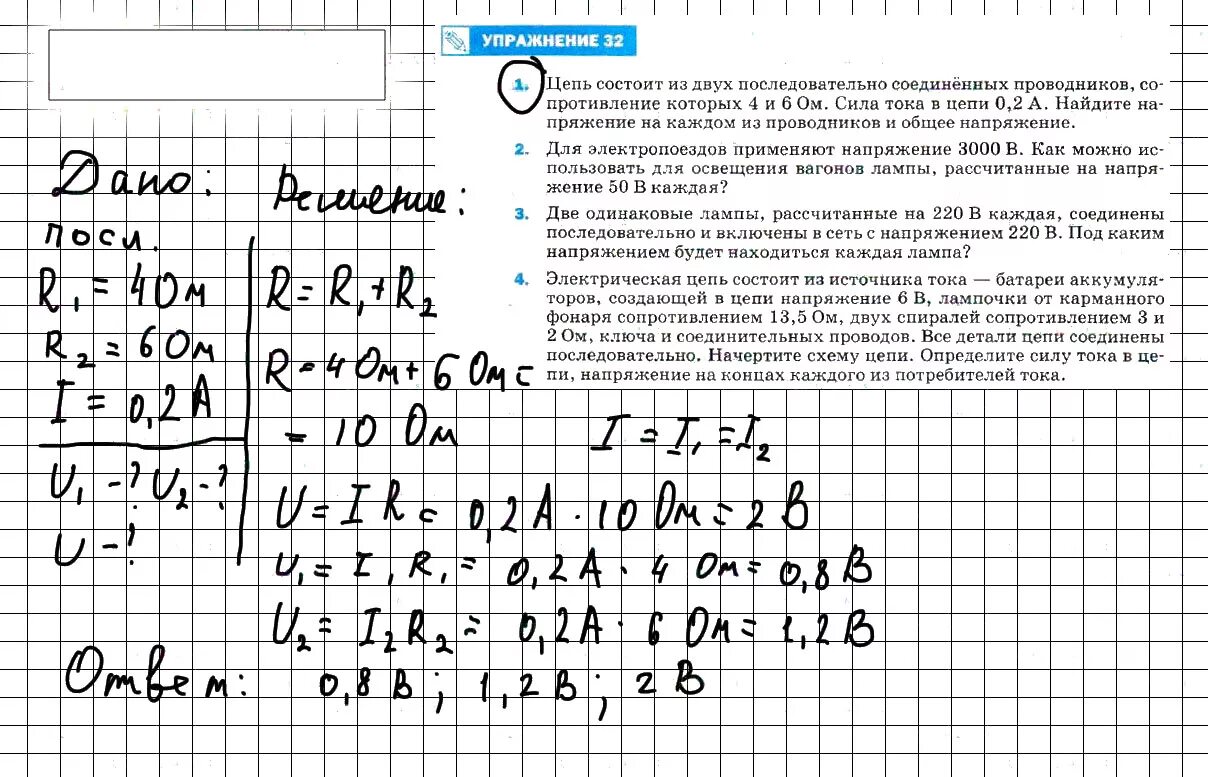 УПРАЖНЕНИЕ 32
1. Цепь состоит из двух последовательно соединённых проводников, со-
противление которых 4 и 6 Ом. Сила тока в цепи 0,2 А. Найдите на-
пряжение на каждом из проводников и общее напряжение.
2. Для электропоездов применяют напряжение 3000 В. Как можно ис-
пользовать для освещения вагонов лампы, рассчитанные на напря-
жение 50 В каждая?
3. Две одинаковые лампы, рассчитанные на 220 В каждая, соединены
последовательно и включены в сеть с напряжением 220 В. Под каким
напряжением будет находиться каждая лампа?
4. Электрическая цепь состоит из источника тока — батареи аккумуля-
торов, создающей в цепи напряжение 6 В, лампочки от карманного
фонаря сопротивлением 13,5 Ом, двух спиралей сопротивлением 3 и
2 Ом, ключа и соединительных проводов. Все детали цепи соединены
последовательно. Начертите схему цепи. Определите силу тока в це-
пи, напряжение на концах каждого из потребителей тока.
Дано:
посл.
R₁ = 4 Ом
R₂ = 6 Ом
I = 0,2 А
U₁ -? U₂ -?
U -?
Решение:
R = R₁ + R₂
R = 4 Ом + 6 Ом =
= 10 Ом I = I₁ = I₂
U = I R = 0,2 А · 10 Ом = 2 В
U₁ = I₁ R₁ = 0,2 А · 4 Ом = 0,8 В
U₂ = I₂ R₂ = 0,2 А · 6 Ом = 1,2 В
Ответ: 0,8 В ; 1,2 В ; 2 В